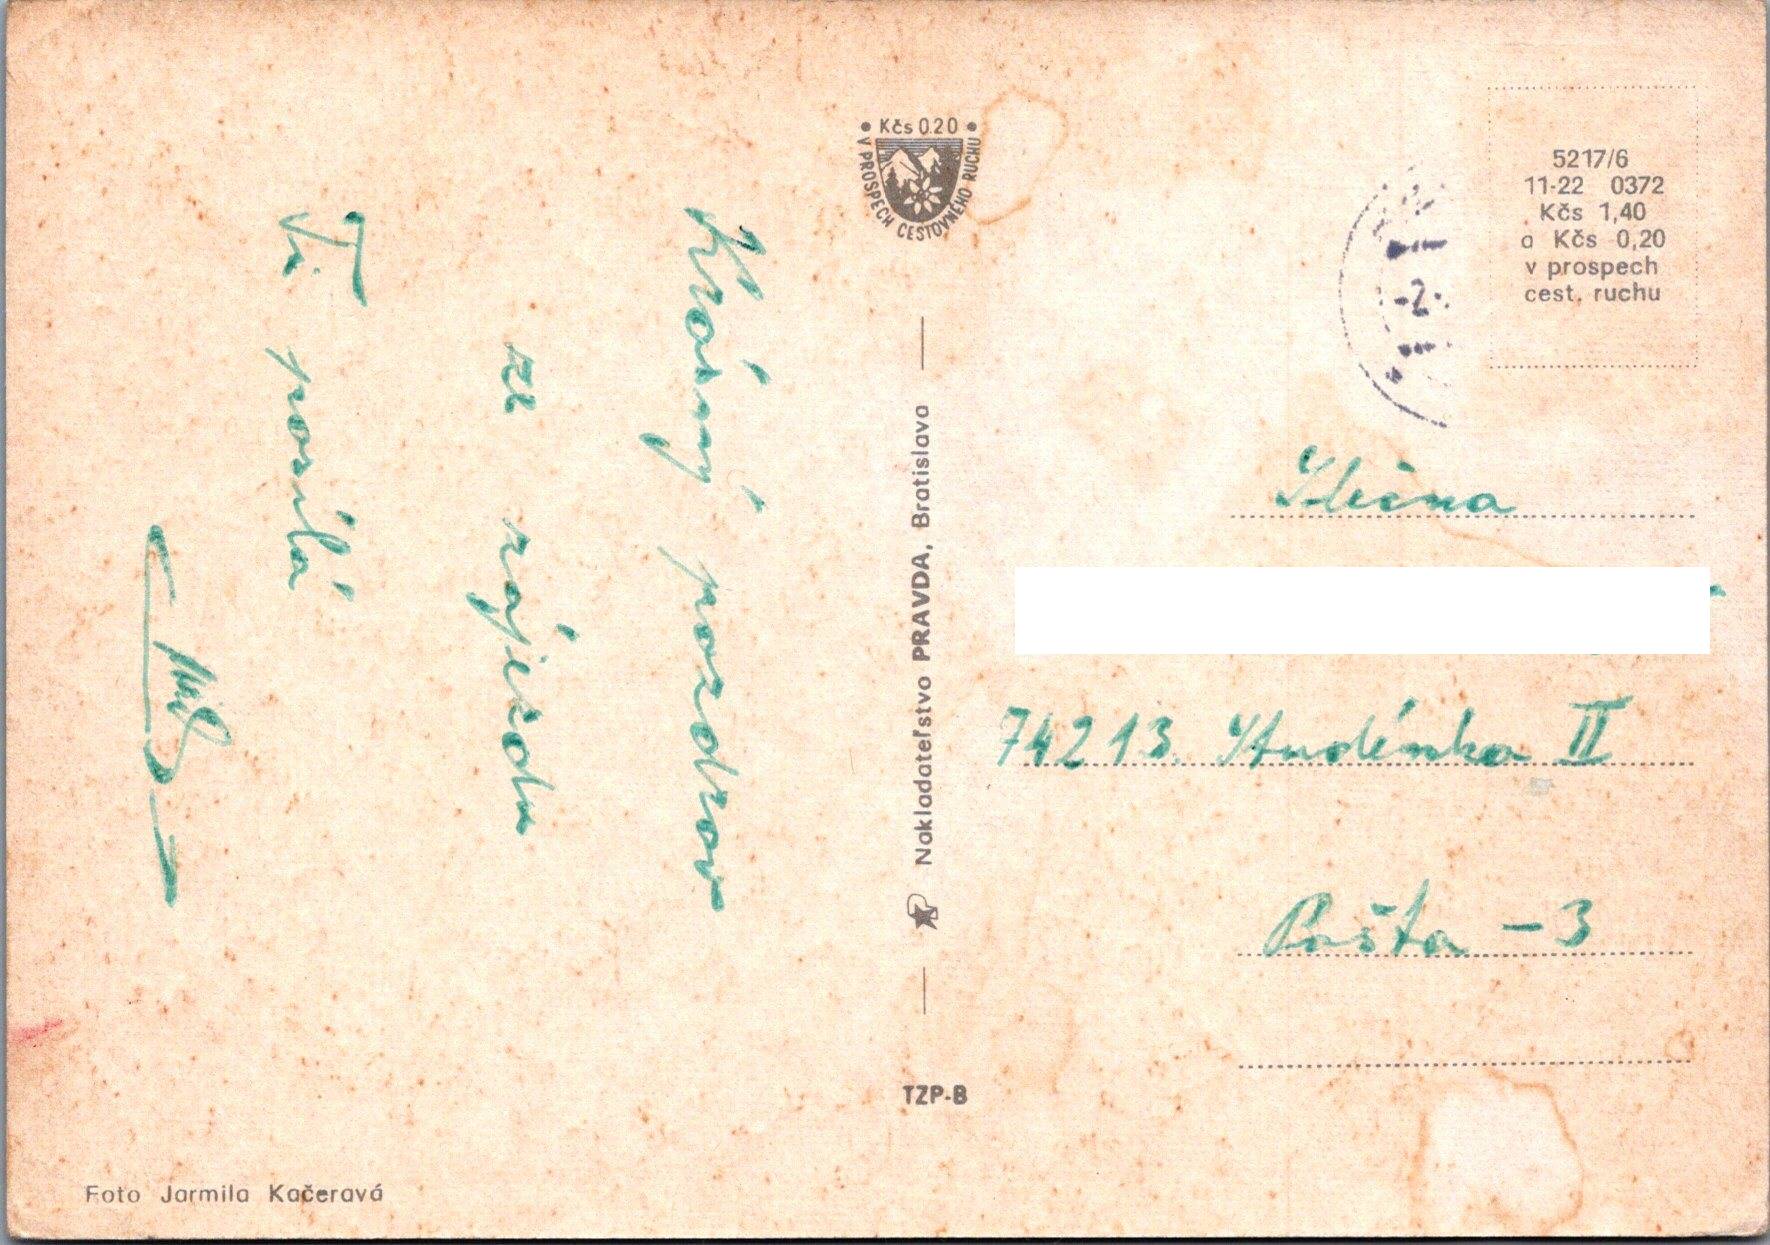 Krásný pozdrav
ze zájezdu
Ti posílá
• Kčs 0.20 •
V PROSPECH CESTOVNÉHO RUCHU
Nakladateľstvo PRAVDA, Bratislava
TZP-B
Foto Jarmila Kačeravá
5217/6
11-22 0372
Kčs 1,40
a Kčs 0,20
v prospech
cest. ruchu
-2.
Slečna
74213 Studénka II
Pošta - 3